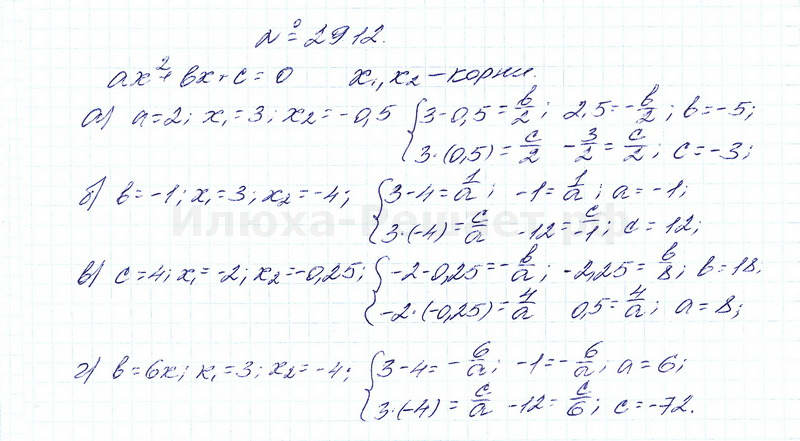 № 2912.
ax² + bx + c = 0   x₁, x₂ – корни.
а) a = 2; x₁ = 3; x₂ = -0,5   { 3 - 0,5 = b/2; 2,5 = -b/2; b = -5;
3·(0,5) = c/2   -3/2 = c/2; c = -3;
б) b = -1; x₁ = 3; x₂ = -4;   { 3 - 4 = 1/a; -1 = 1/a; a = -1;
3·(-4) = c/a   -12 = c/-1; c = 12;
Илюха-Решнет.рф
в) c = 4; x₁ = -2; x₂ = -0,25;   { -2 - 0,25 = -b/a; -2,25 = b/8; b = 18.
-2·(-0,25) = 4/a   0,5 = 4/a; a = 8;
г) b = 6x; x₁ = 3; x₂ = -4;   { 3 - 4 = -6/a; -1 = -6/a; a = 6;
3·(-4) = c/a   -12 = c/6; c = -72.